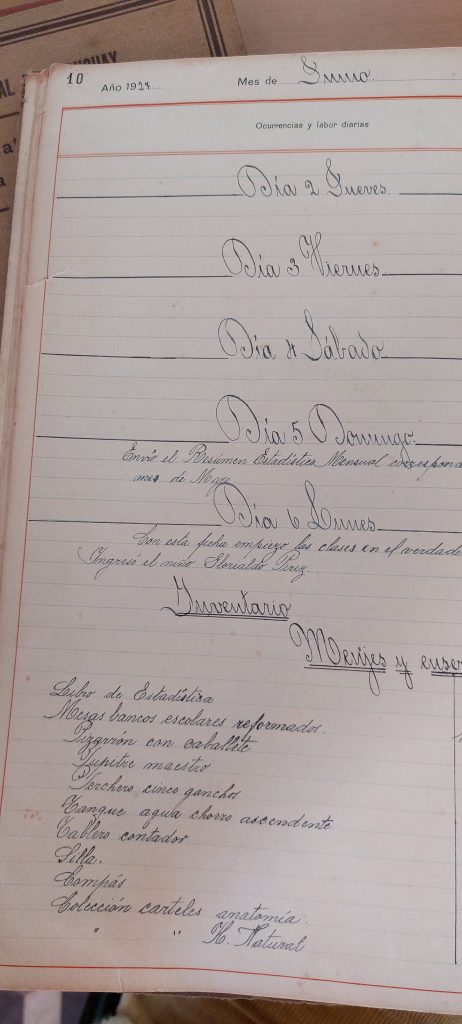 UGUAY
AL
10
Año
Mes de Junio
Ocurrencias y labor diarias
Día 2 Jueves
Día 3 Viernes
Día 4 Sábado
Día 5 Domingo
Envío el Resúmen Estadística Mensual correspond
mes de Mayo
Día 6 Lunes
Con esta fecha empiezo las clases en el verdade
Ingresó el niño Florialdo Pirez
Inventario
Menjes y enser
Libro de Estadística
Mesas bancos escolares reformados.
Pizarrón con caballete
Pupitre maestro
Perchero cinco ganchos
Tanque agua chorro ascendente
Tablero contador
Silla.
Compás
Colección carteles anatomía.
" " H. Natural